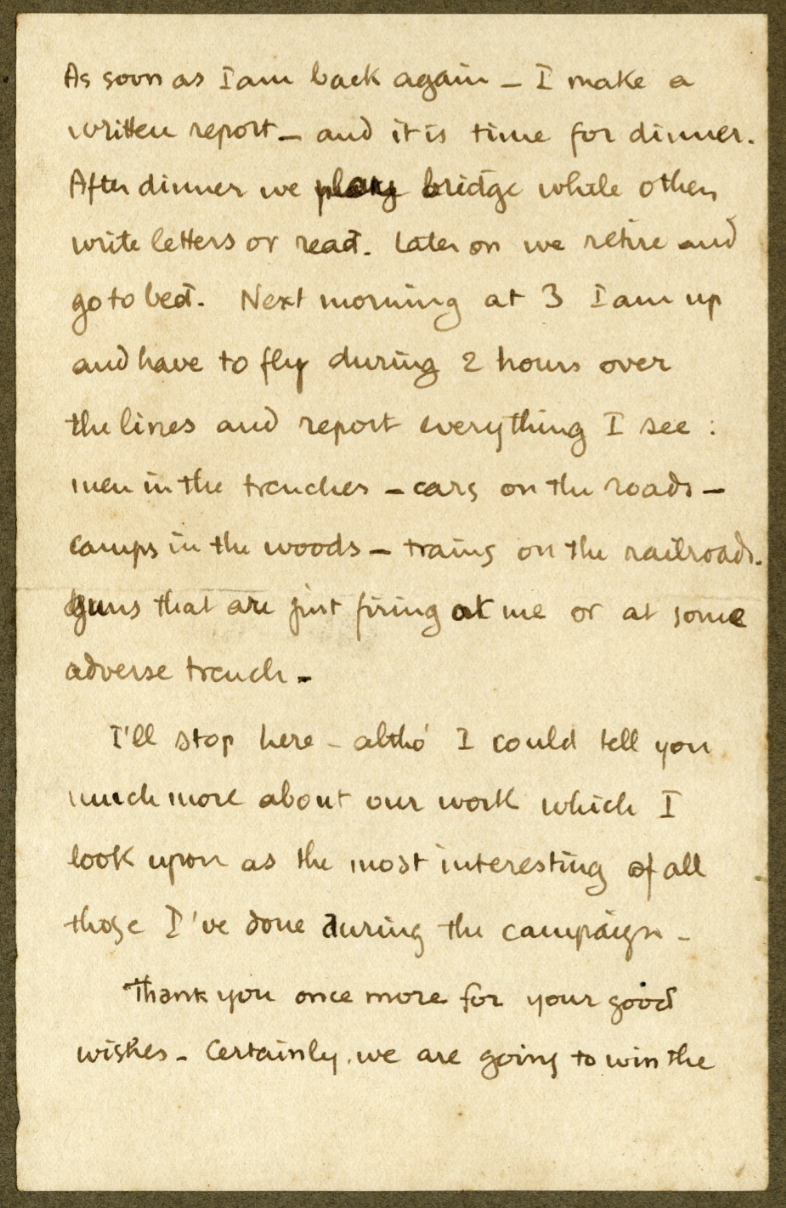 As soon as I am back again – I make a
written report – and it is time for dinner.
After dinner we play bridge while others
write letters or read. Later on we retire and
go to bed. Next morning at 3 I am up
and have to fly during 2 hours over
the lines and report everything I see :
men in the trenches – cars on the roads –
camps in the woods – trains on the railroads.
guns that are just firing at me or at some
adverse trench –
I'll stop here – altho' I could tell you
much more about our work which I
look upon as the most interesting of all
those I've done during the campaign –
Thank you once more for your good
wishes – Certainly we are going to win the